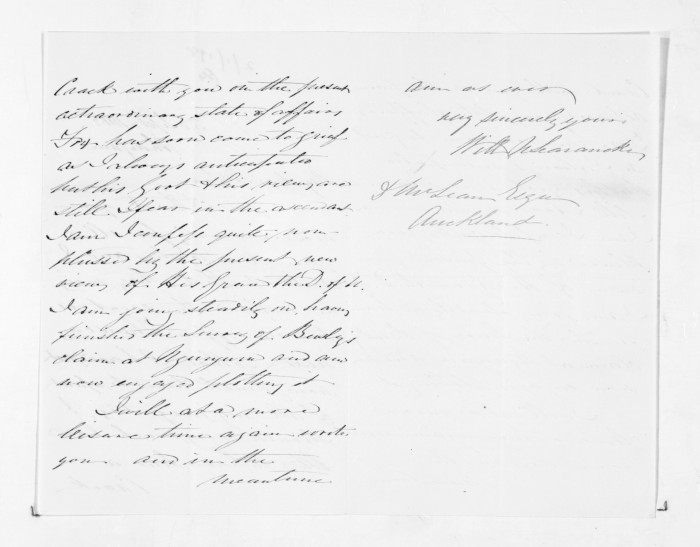 Crack with you on the present
extraordinary state of affairs
Fox has soon come to grief
as I always anticipated
but his & this views are
still I fear in the
I am I confess quite non-
plussed by the present new
views of His Grace the D. of N.
I am going steadily on having
finished the Survey of
claim at and am
now engaged plotting it
I will at a more
leisure time again write
you and in the
meantime
aim as ever
very sincerely yours
Will
D McLean Esqr
Auckland.